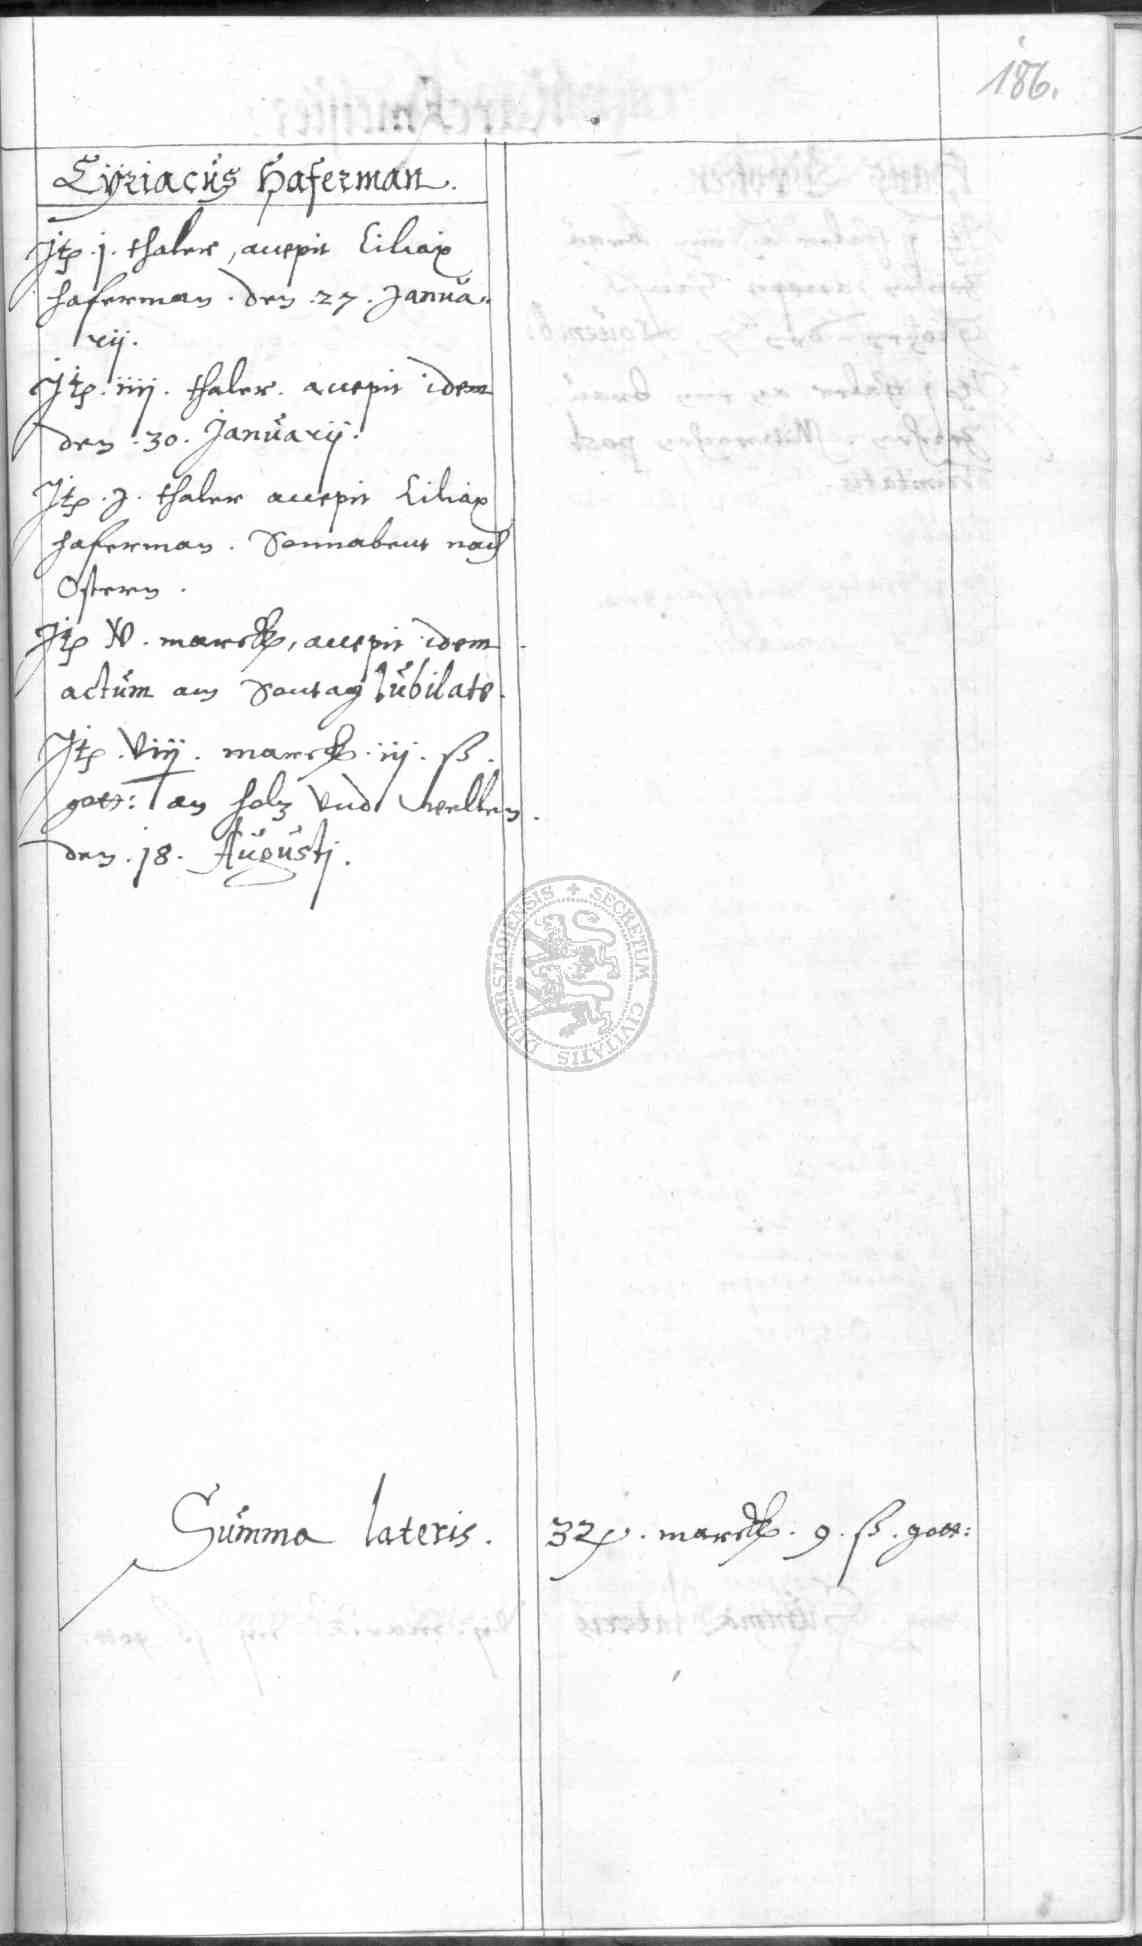 186.
Cÿriacus Haferman.
Itē .j. thaler, accepit Ciliax
Haferman . den .27. Janua-
rij.
Itē .iiij. thaler. accepit idem
den .30. Januarij.
Itē .j. thaler accepit Ciliax
Haferman . Sonnabent nach
Ostern .
Itē XV. marck, accepit idem
actum am Sontag Iubilate.
Itē .viij. marck .iij. ß.
gott: an holtz vnd wellen.
den .18. Augustj.
SECRETUM CIVITATIS DUDERSTADIENSIS
Summa lateris. marck. 9. ß. gott: